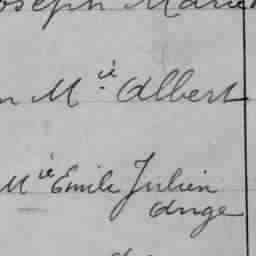 Joseph Marie
n Mie Albert
Mie Emile Julien
Ange